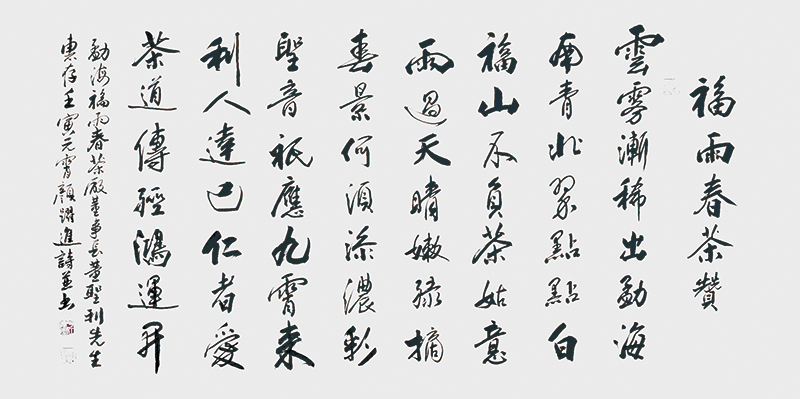 福雨春茶贊
雲雾漸稀出勐海
南青北翠點點白
福山不負茶姑意
雨過天晴嫩綠摘
春景何須添濃彩
聖音祇應九霄來
利人達己仁者愛
茶道傳經鴻運開
勐海福雨春茶廠董事長董聖利先生
惠存壬寅元宵顏躍進詩並書